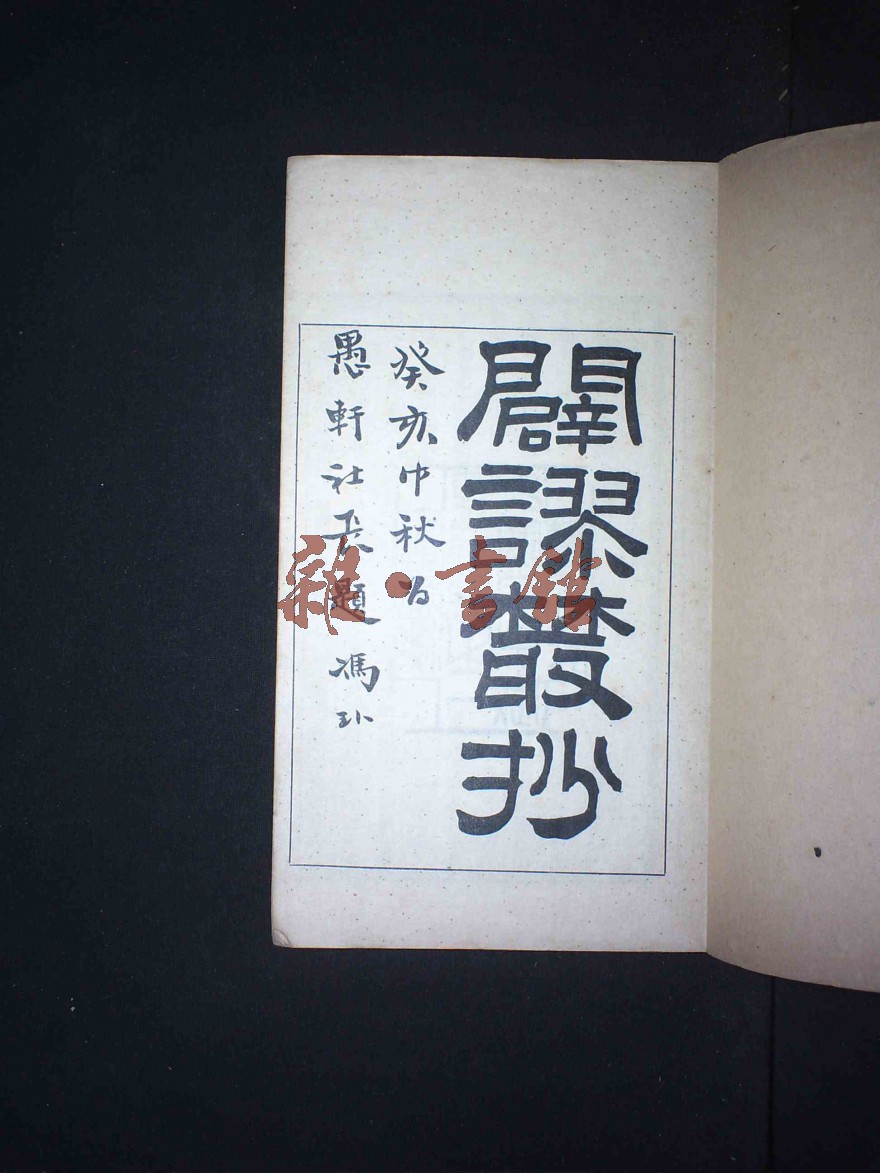 闢謬叢抄
癸亥中秋为
愚軒社長題馮
雜·書館